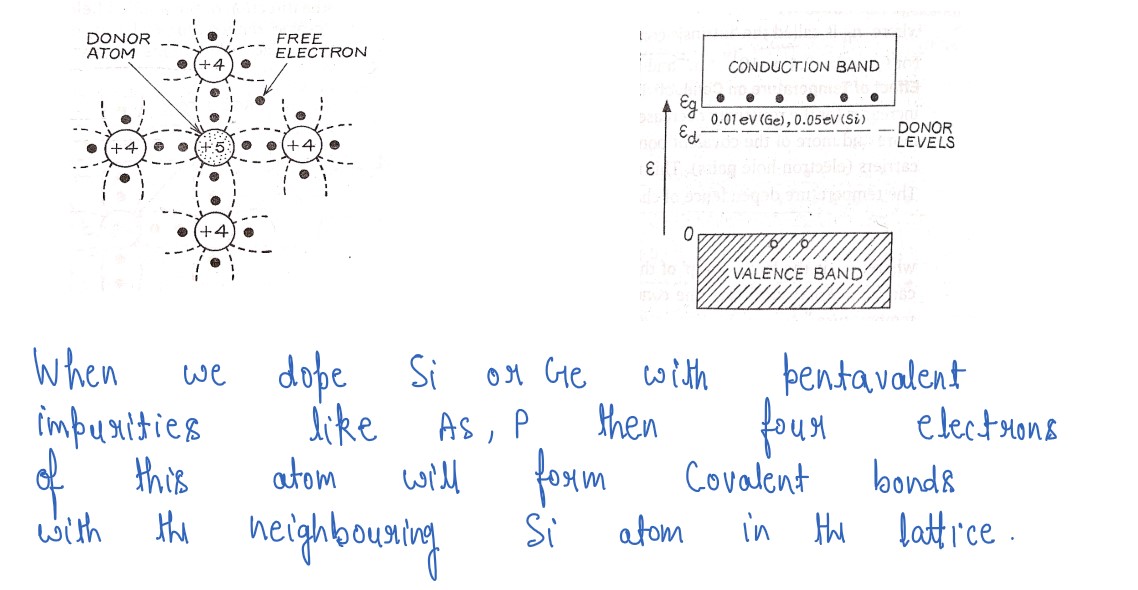 DONOR
ATOM
FREE
ELECTRON
+4
+4
+5
+4
+4
CONDUCTION BAND
εg
0.01 eV (Ge), 0.05 eV (Si)
εd
DONOR
LEVELS
ε
0
VALENCE BAND
When we dope Si or Ge with pentavalent
impurities like As, P then four electrons
of this atom will form Covalent bonds
with the neighbouring Si atom in the lattice.